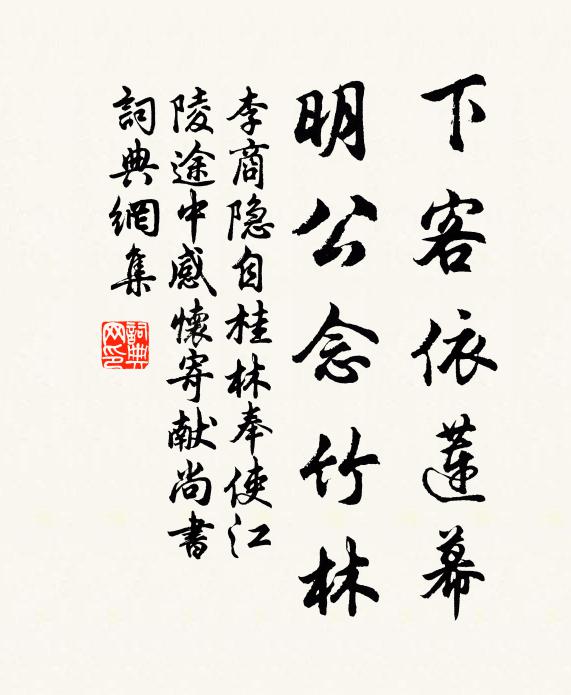 下客依蓮幕
明公念竹林
李商隐自桂林奉使江
陵途中感懷寄献尚書
詞典網集
詞典网印